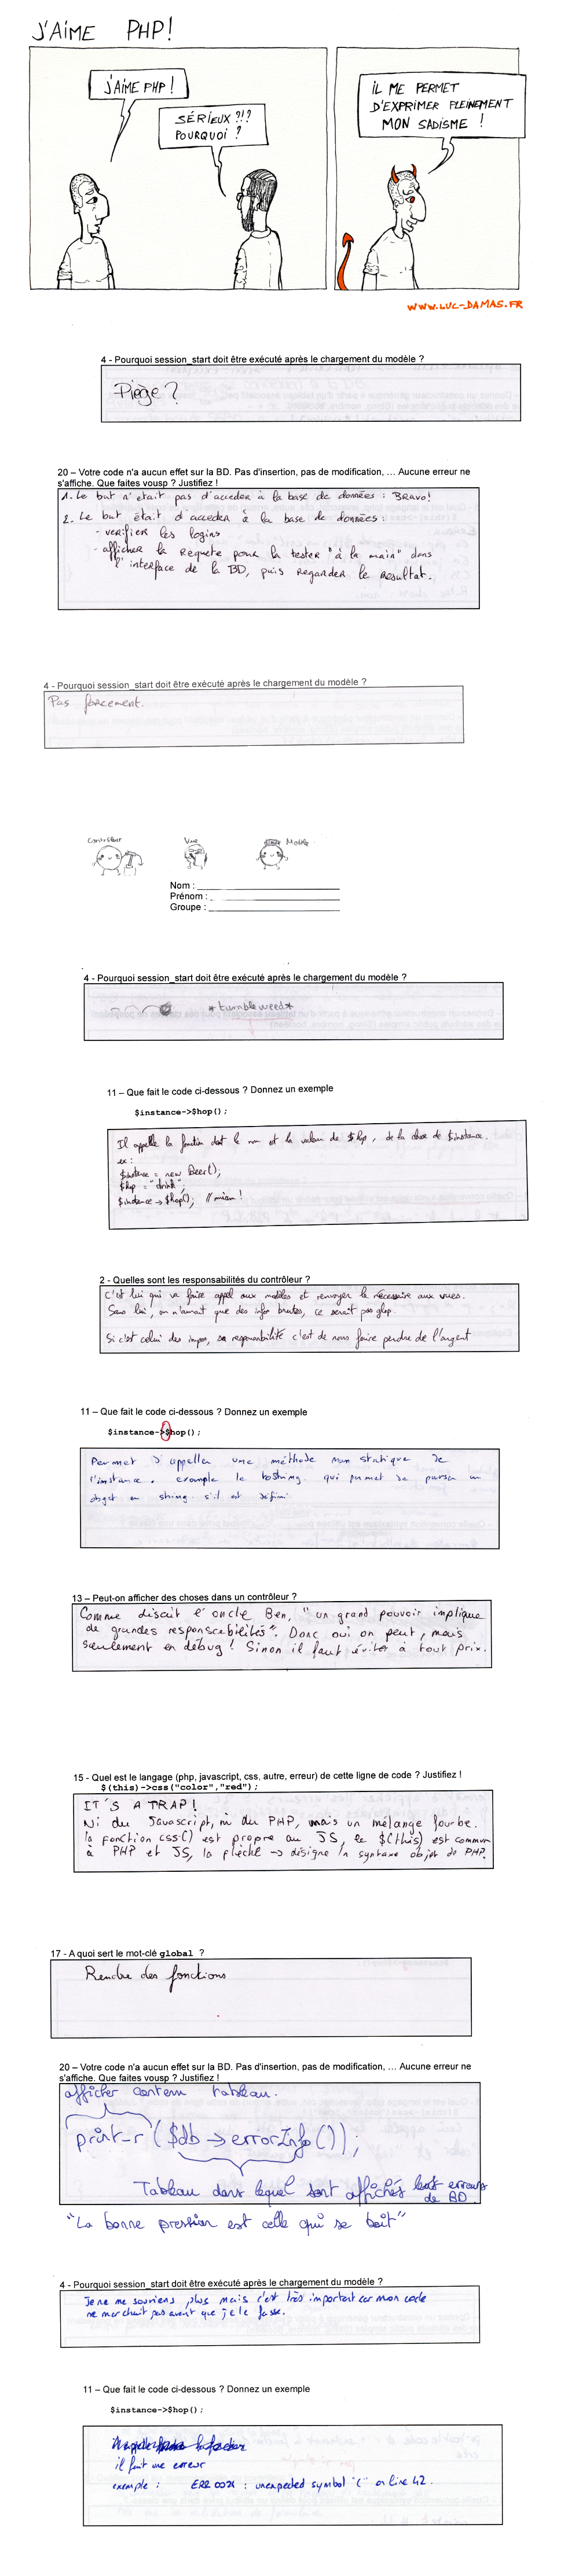 J'AIME PHP!
J'AIME PHP !
SÉRIEUX ?!?
POURQUOI ?
IL ME PERMET
D'EXPRIMER PLEINEMENT
MON SADISME !
WWW.LUC-DAMAS.FR
4 - Pourquoi session_start doit être exécuté après le chargement du modèle ?
Piège ?
20 – Votre code n'a aucun effet sur la BD. Pas d'insertion, pas de modification, … Aucune erreur ne
s'affiche. Que faites vousp ? Justifiez !
1. Le but n'était pas d'acceder à la base de données : BRAVO!
2. Le but était d'acceder à la base de données :
- verifier les logins
- afficher la requete pour la tester "à la main" dans
l'interface de la BD, puis regarder le resultat.
4 - Pourquoi session_start doit être exécuté après le chargement du modèle ?
Pas forcement.
Controleur Vue Modèle
Nom :
Prénom :
Groupe :
4 - Pourquoi session_start doit être exécuté après le chargement du modèle ?
*tumbleweed*
11 – Que fait le code ci-dessous ? Donnez un exemple
$instance->$hop();
Il appelle la fonction dont le nom est la valeur de $hop, de la classe de $instance.
ex :
$instance = new Beer();
$hop = "drink";
$instance->$hop(); // miam !
2 - Quelles sont les responsabilités du contrôleur ?
C'est lui qui va faire appel aux modèles et renvoyer le nécessaire aux vues.
Sans lui, on n'aurait que des infos brutes, ce serait pas glop.
Si c'est celui des impos, sa responsabilité c'est de nous faire perdre de l'argent
11 – Que fait le code ci-dessous ? Donnez un exemple
$instance->$hop();
Permet d'appeller une méthode non statique de
l'instance. exemple le toString qui permet de parser un
objet en string s'il est défini
13 – Peut-on afficher des choses dans un contrôleur ?
Comme disait l'oncle Ben, "un grand pouvoir implique
de grandes responsabilités". Donc oui on peut, mais
seulement en débug ! Sinon il faut éviter à tout prix.
15 - Quel est le langage (php, javascript, css, autre, erreur) de cette ligne de code ? Justifiez !
$(this)->css("color","red");
IT'S A TRAP!
Ni du Javascript, ni du PHP, mais un mélange fourbe.
la fonction css() est propre au JS, le $(this) est commun
à PHP et JS, la flèche -> désigne la syntaxe objet de PHP.
17 - A quoi sert le mot-clé global ?
Rendre des fonctions
20 – Votre code n'a aucun effet sur la BD. Pas d'insertion, pas de modification, … Aucune erreur ne
s'affiche. Que faites vousp ? Justifiez !
afficher contenu tableau.
print_r($db->errorInfo());
Tableau dans lequel sont affichés les erreurs
de BD.
"La bonne pression est celle qui se boit"
4 - Pourquoi session_start doit être exécuté après le chargement du modèle ?
Je ne me souviens plus mais c'est très important car mon code
ne marchait pas avant que je le fasse.
11 – Que fait le code ci-dessous ? Donnez un exemple
$instance->$hop();
il fait une erreur
exemple : ERR 002X : unexpected symbol "(" on line 42.